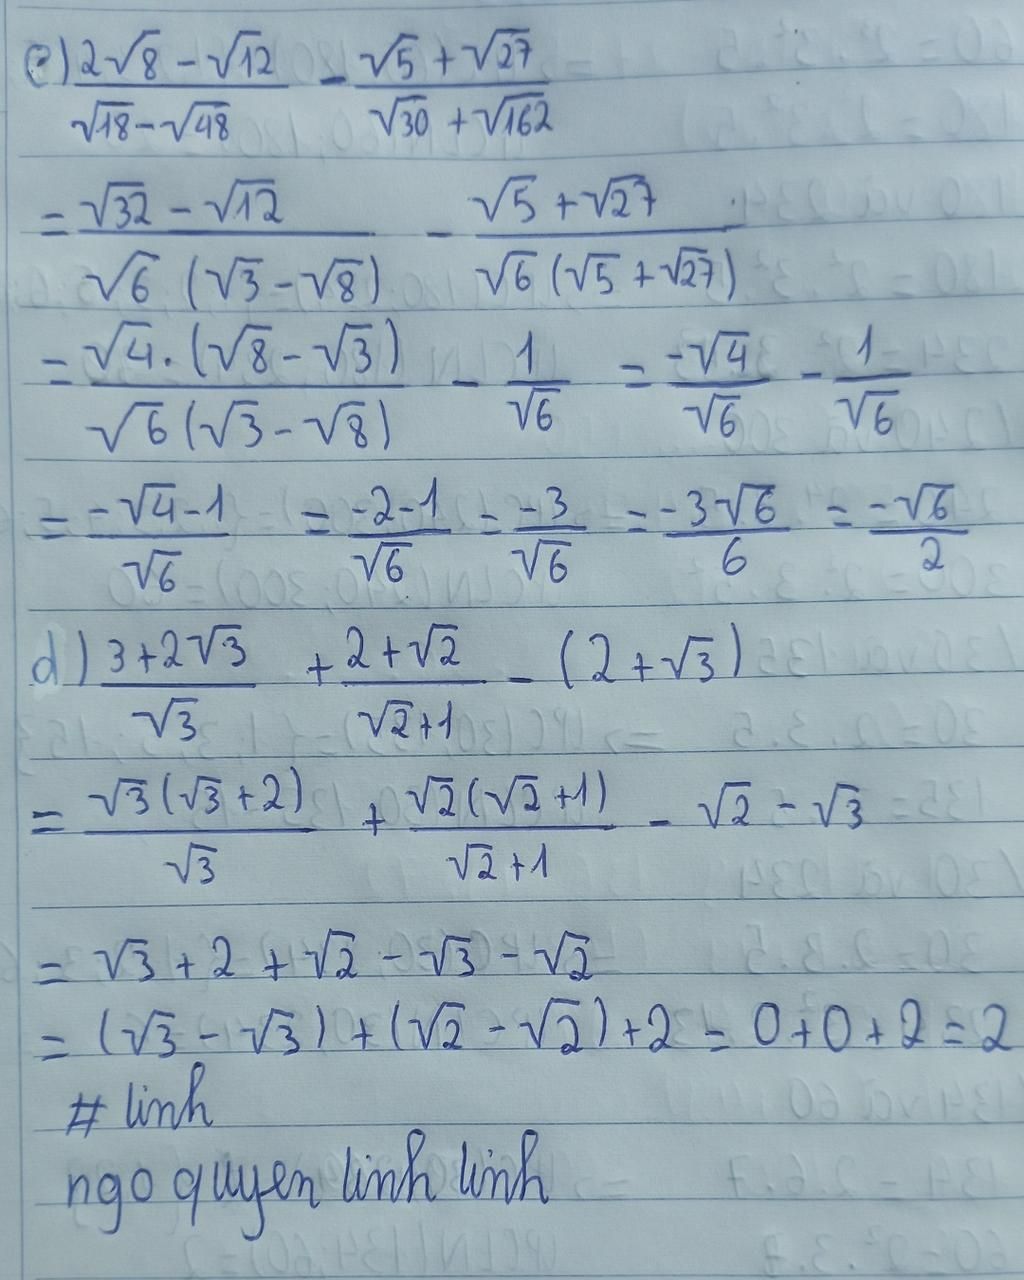 c) (2√8 - √12)/(√18 - √48) - (√5 + √27)/(√30 + √162)
= (√32 - √12)/(√6 (√3 - √8)) - (√5 + √27)/(√6 (√5 + √27))
= (√4 . (√8 - √3))/(√6 (√3 - √8)) - 1/√6 = -√4/√6 - 1/√6
= (-√4 - 1)/√6 = (-2 - 1)/√6 = -3/√6 = -3√6/6 = -√6/2
d) (3 + 2√3)/√3 + (2 + √2)/(√2 + 1) - (2 + √3)
= √3(√3 + 2)/√3 + √2(√2 + 1)/(√2 + 1) - √2 - √3
= √3 + 2 + √2 - √3 - √2
= (√3 - √3) + (√2 - √2) + 2 = 0 + 0 + 2 = 2
# linh
ngo quyen linh linh